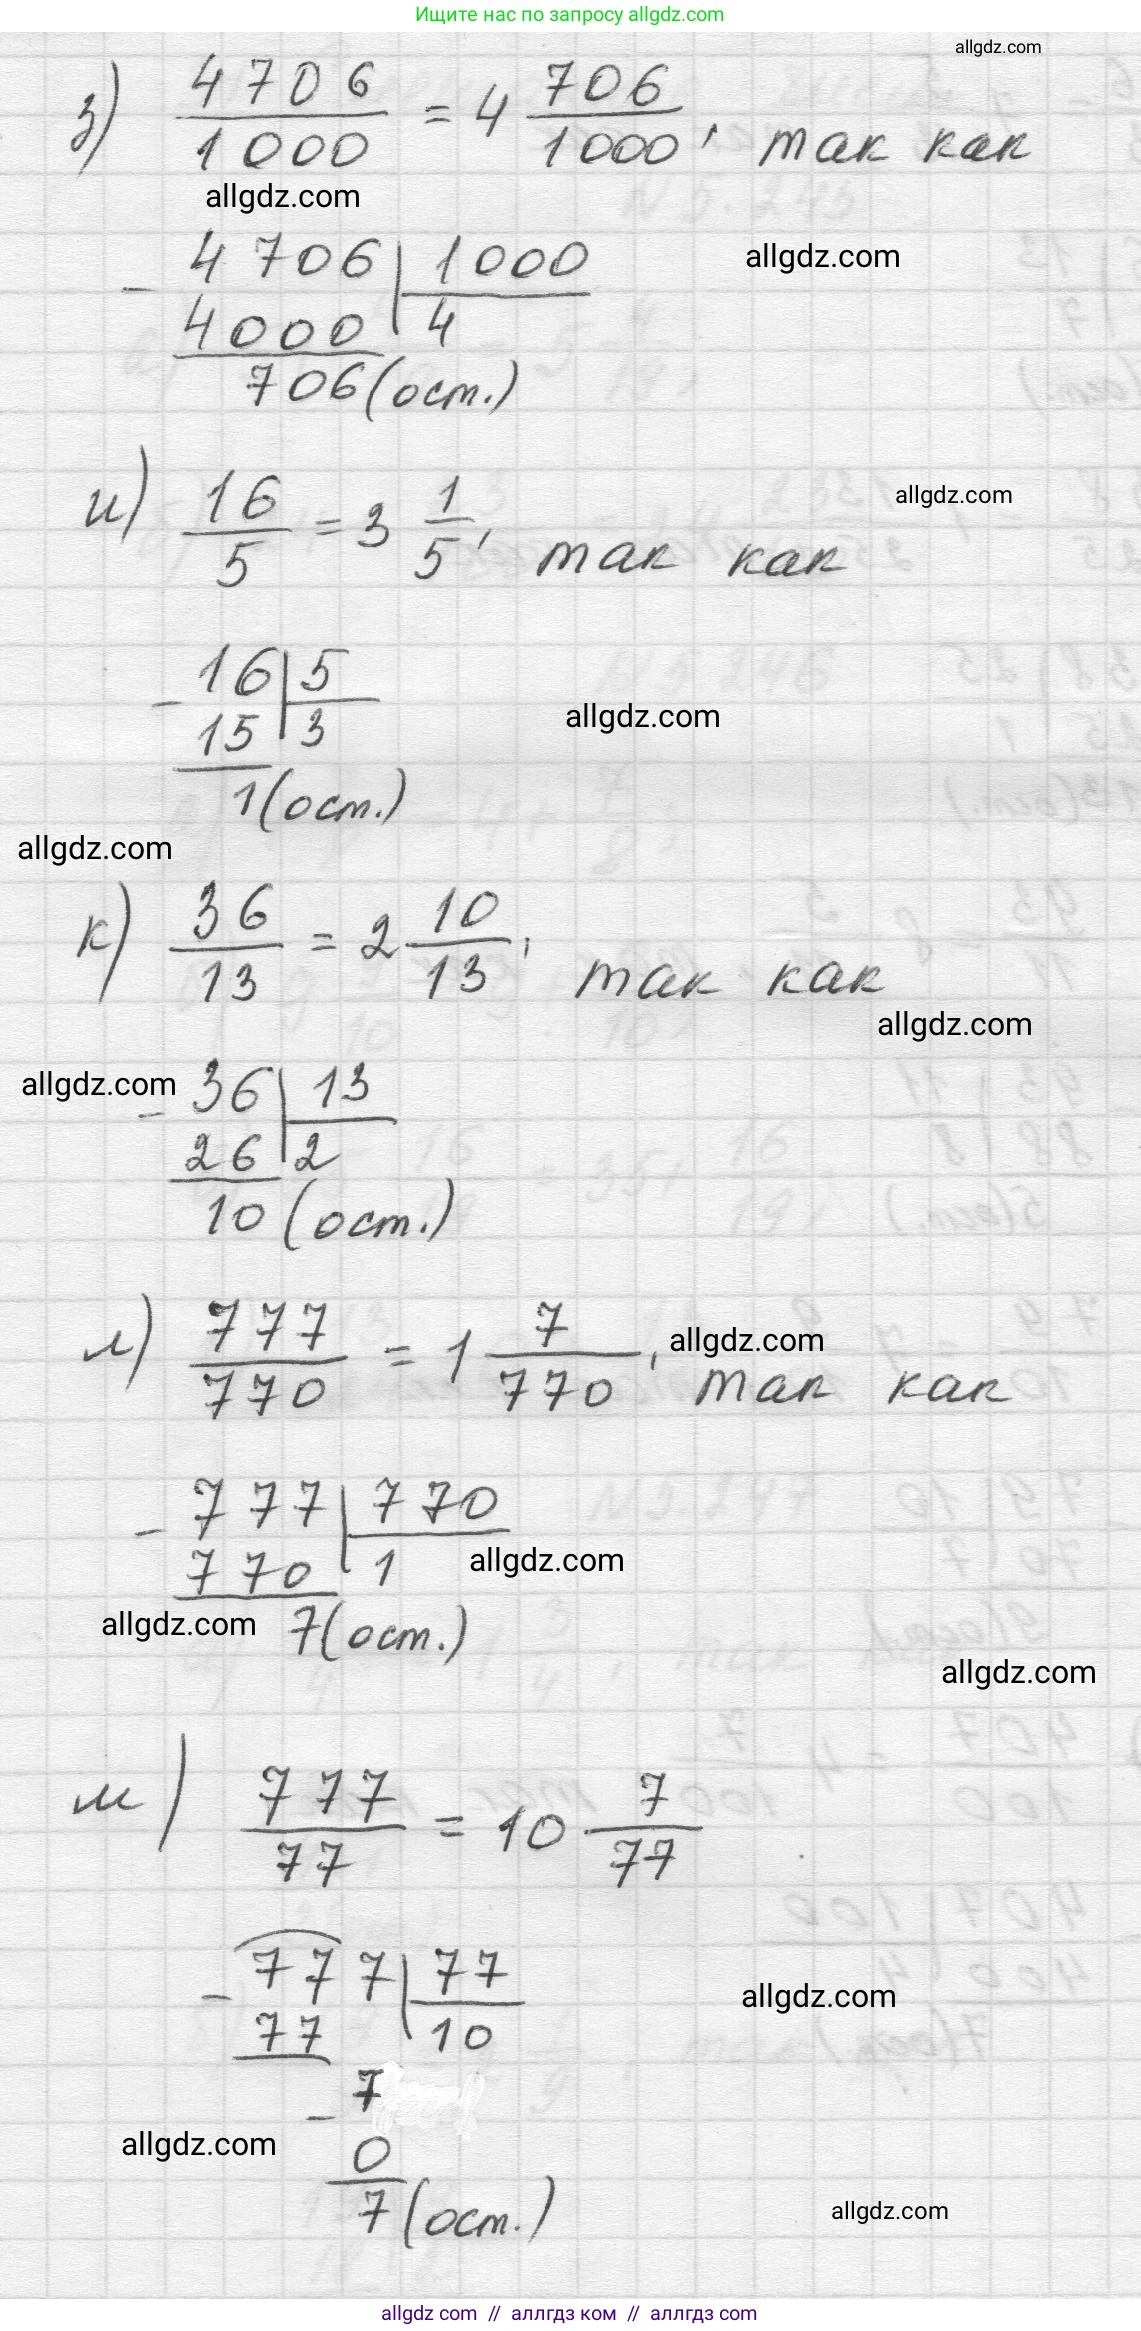 Ищите нас по запросу allgdz.com
allgdz.com
з) 4706/1000 = 4 706/1000, так как
allgdz.com
4706 | 1000
allgdz.com
- 4000 | 4
706 (ост.)
и) 16/5 = 3 1/5, так как
allgdz.com
16 | 5
- 15 | 3
allgdz.com
1 (ост.)
allgdz.com
к) 36/13 = 2 10/13, так как
allgdz.com
allgdz.com
36 | 13
- 26 | 2
10 (ост.)
л) 777/770 = 1 7/770, так как
allgdz.com
777 | 770
- 770 | 1
allgdz.com
allgdz.com
7 (ост.)
allgdz.com
м) 777/77 = 10 7/77
777 | 77
- 77 | 10
allgdz.com
- 7
0
allgdz.com
7 (ост.)
allgdz.com
allgdz com // аллгдз ком // аллгдз com